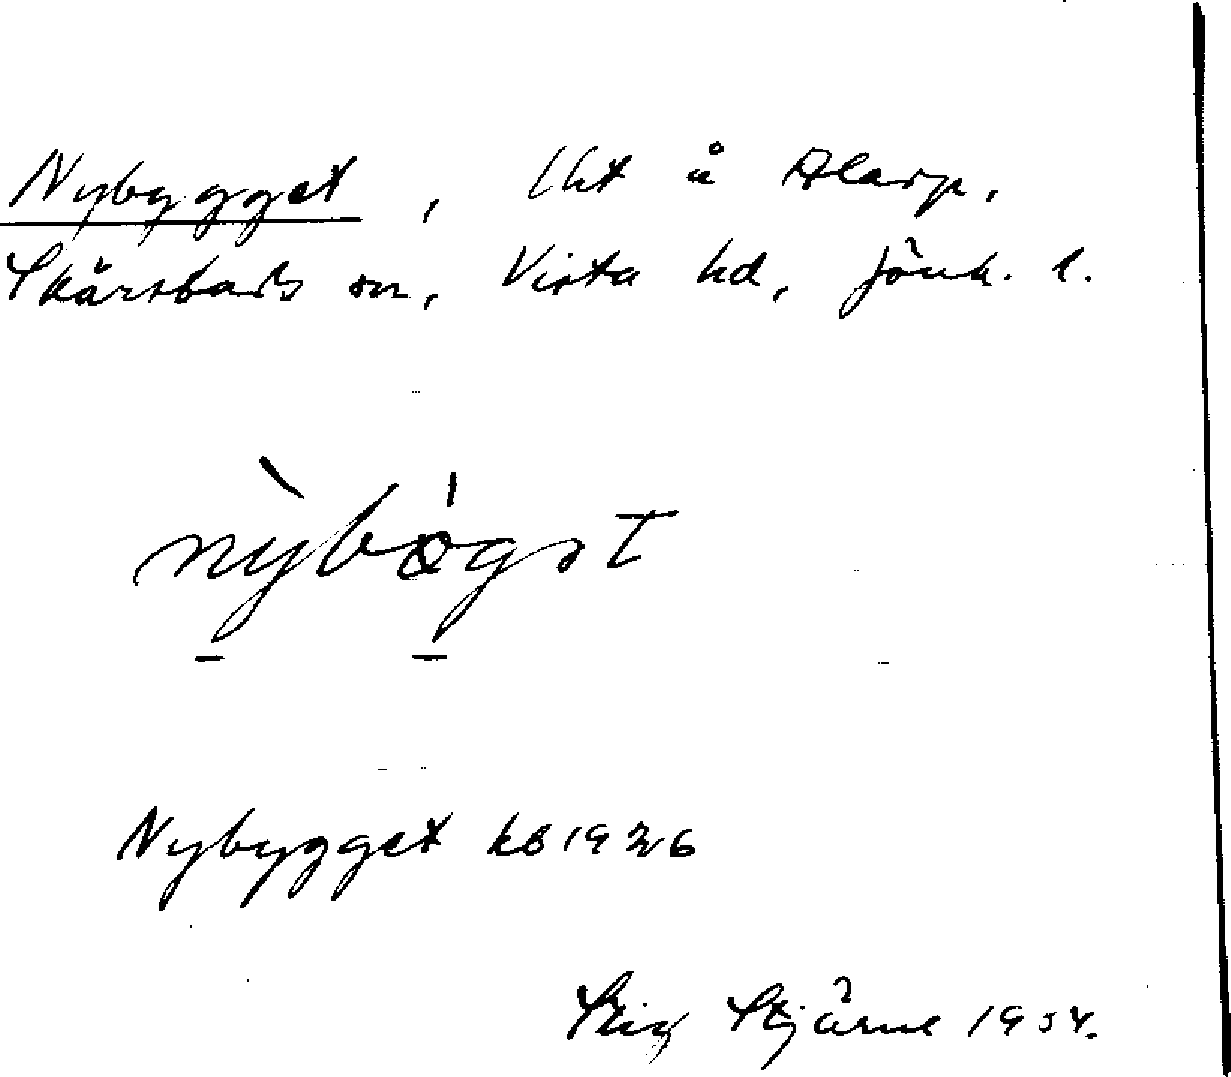 Nybygget, lht å Alarp,
Skärstads sn, Vista hd, Jönk. l.
nỳbǿgət
Nybygget kb 1926
Stig Stjärne 1954.